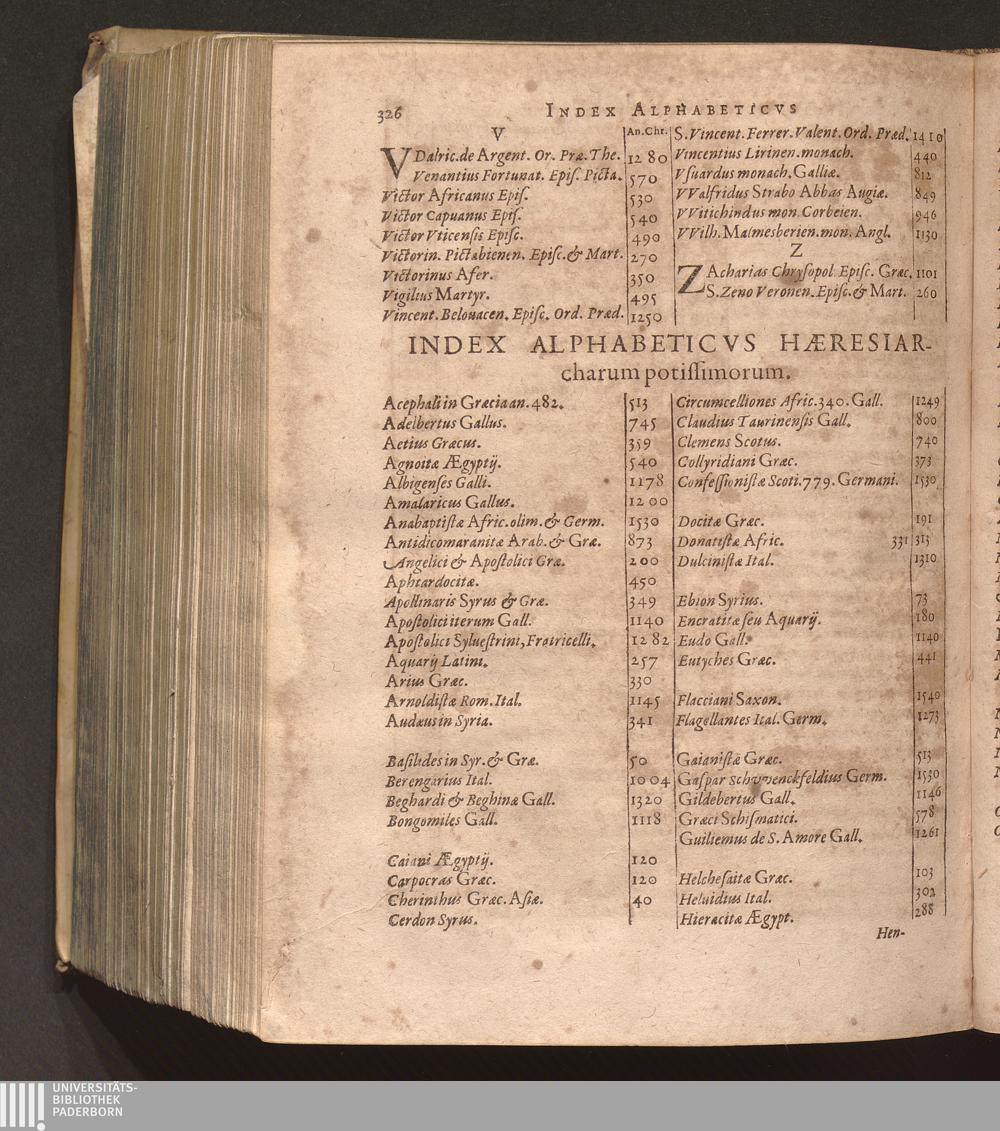 326 INDEX ALPHABETICVS
V
An.Chr.
VDalric.de Argent. Or. Præ. The. 1280
Venantius Fortunat. Epiſ. Picta. 570
Victor Africanus Epiſ. 530
Victor Capuanus Epiſ. 540
Victor Vticenſis Epiſc. 490
Victorin. Pictabienen. Epiſc. & Mart. 270
Victorinus Afer. 350
Vigilius Martyr. 495
Vincent. Belouacen. Epiſc. Ord. Præd. 1250
S. Vincent. Ferrer. Valent. Ord. Præd. 1410
Vincentius Lirinen. monach. 440
Vſuardus monach. Galliæ. 812
VValfridus Strabo Abbas Augiæ. 849
VVitichindus mon. Corbeien. 946
VVilh. Malmesberien. mon. Angl. 1130
Z
ZAcharias Chryſopol. Epiſc. Græc. 1101
S. Zeno Veronen. Epiſc. & Mart. 260
INDEX ALPHABETICVS HÆRESIAR-
charum potiſſimorum.
Acephali in Græcia an. 482. 513
Adelbertus Gallus. 745
Aetius Græcus. 359
Agnoitæ Ægyptij. 540
Albigenſes Galli. 1178
Amalaricus Gallus. 1200
Anabaptiſtæ Afric. olim. & Germ. 1530
Antidicomaranitæ Arab. & Græ. 873
Angelici & Apoſtolici Græ. 200
Aphtardocitæ. 450
Apollinaris Syrus & Græ. 349
Apoſtolici iterum Gall. 1140
Apoſtolici Sylueſtrini, Fratricelli. 1282
Aquarij Latini. 257
Arius Græc. 330
Arnoldiſtæ Rom. Ital. 1145
Audæus in Syria. 341
Baſilides in Syr. & Græ. 50
Berengarius Ital. 1004
Beghardi & Beghinæ Gall. 1320
Bongomiles Gall. 1118
Caiani Ægyptij. 120
Carpocras Græc. 120
Cherinthus Græc. Aſiæ. 40
Cerdon Syrus.
Circumcelliones Afric. 340. Gall. 1249
Claudius Taurinenſis Gall. 800
Clemens Scotus. 740
Collyridiani Græc. 373
Confeſſioniſtæ Scoti. 779. Germani. 1530
Docitæ Græc. 191
Donatiſtæ Afric. 331 313
Dulciniſtæ Ital. 1310
Ebion Syrius. 73
Encratitæ ſeu Aquarij. 180
Eudo Gall. 1140
Eutyches Græc. 441
Flacciani Saxon. 1540
Flagellantes Ital. Germ. 1273
Gaianiſtæ Græc. 513
Gaſpar Schvvenckfeldius Germ. 1530
Gildebertus Gall. 1146
Græci Schiſmatici. 578
Guilielmus de S. Amore Gall. 1261
Helcheſaitæ Græc. 103
Heluidius Ital. 302
Hieracitæ Ægypt. 288
Hen-
UNIVERSITÄTS-
BIBLIOTHEK
PADERBORN